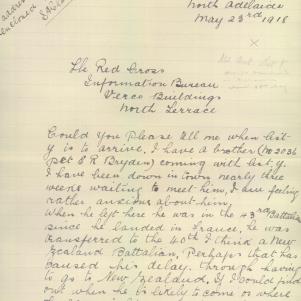 North Adelaide
May 23rd 1918
The Red Cross
Information Bureau
Verco Buildings
North Terrace
Could you please tell me when list
y is to arrive. I have a brother (No 2036
Pte S R Bryden) coming with list y.
I have been down in town nearly three
weeks waiting to meet him, I am feeling
rather anxious about him,
When he left here he was in the 43rd Battalion
since he landed in France, he was
transferred to the 40th I think a New
Zealand Battalion, Perhaps that has
caused this delay. through having
to go to New Zealand, if I could find
out when he is likely to come or where